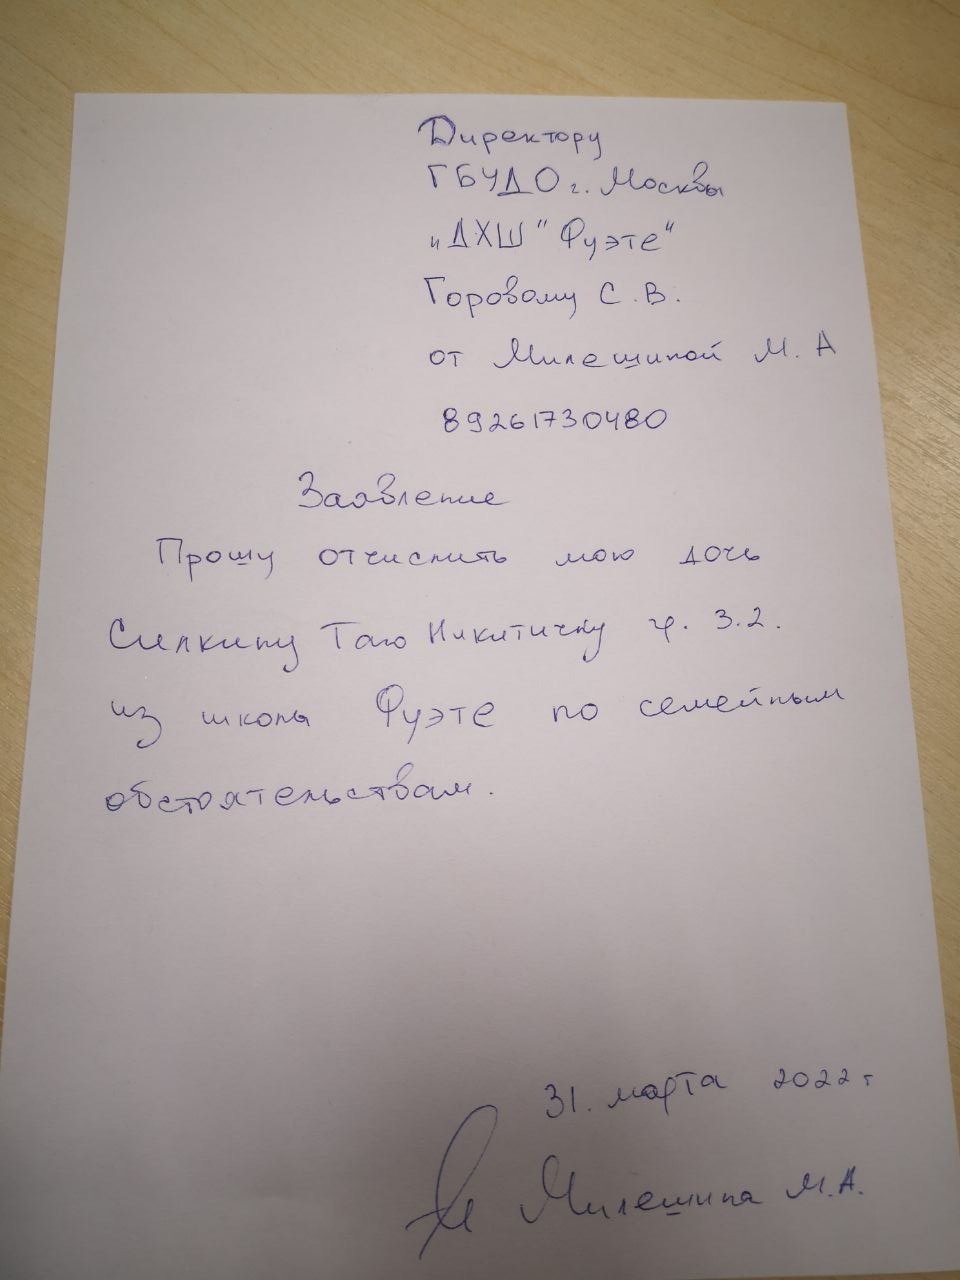 Директору
ГБУДО г. Москвы
"ДХШ "Фуэте"
Горовому С.В.
от Милешиной М.А
89261730480
Заявление
Прошу отчислить мою дочь
Силкину Таю Никитичну гр. 3.2.
из школы Фуэте по семейным
обстоятельствам.
31. марта 2022 г
Милешина М.А.